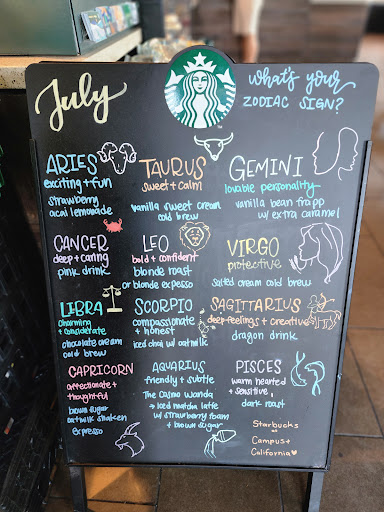 July
what's your
ZODIAC SIGN?
ARIES
exciting + fun
strawberry
acai lemonade
TAURUS
sweet + calm
vanilla sweet cream
cold brew
GEMINI
lovable personality
vanilla bean frapp
w/ extra caramel
CANCER
deep + caring
pink drink
LEO
bold + confident
blonde roast
or blonde espresso
VIRGO
protective
salted cream cold brew
LIBRA
charming
+ considerate
chocolate cream
cold brew
SCORPIO
compassionate
+ honest
iced chai w/ oatmilk
SAGITTARIUS
deep feelings + creative
dragon drink
CAPRICORN
affectionate +
thoughtful
brown sugar
oatmilk shaken
espresso
AQUARIUS
friendly + subtle
The Cosmo Wanda
→ iced matcha latte
w/ strawberry foam
+ brown sugar
PISCES
warm hearted
+ sensitive,
dark roast
Starbucks
on
Campus +
California